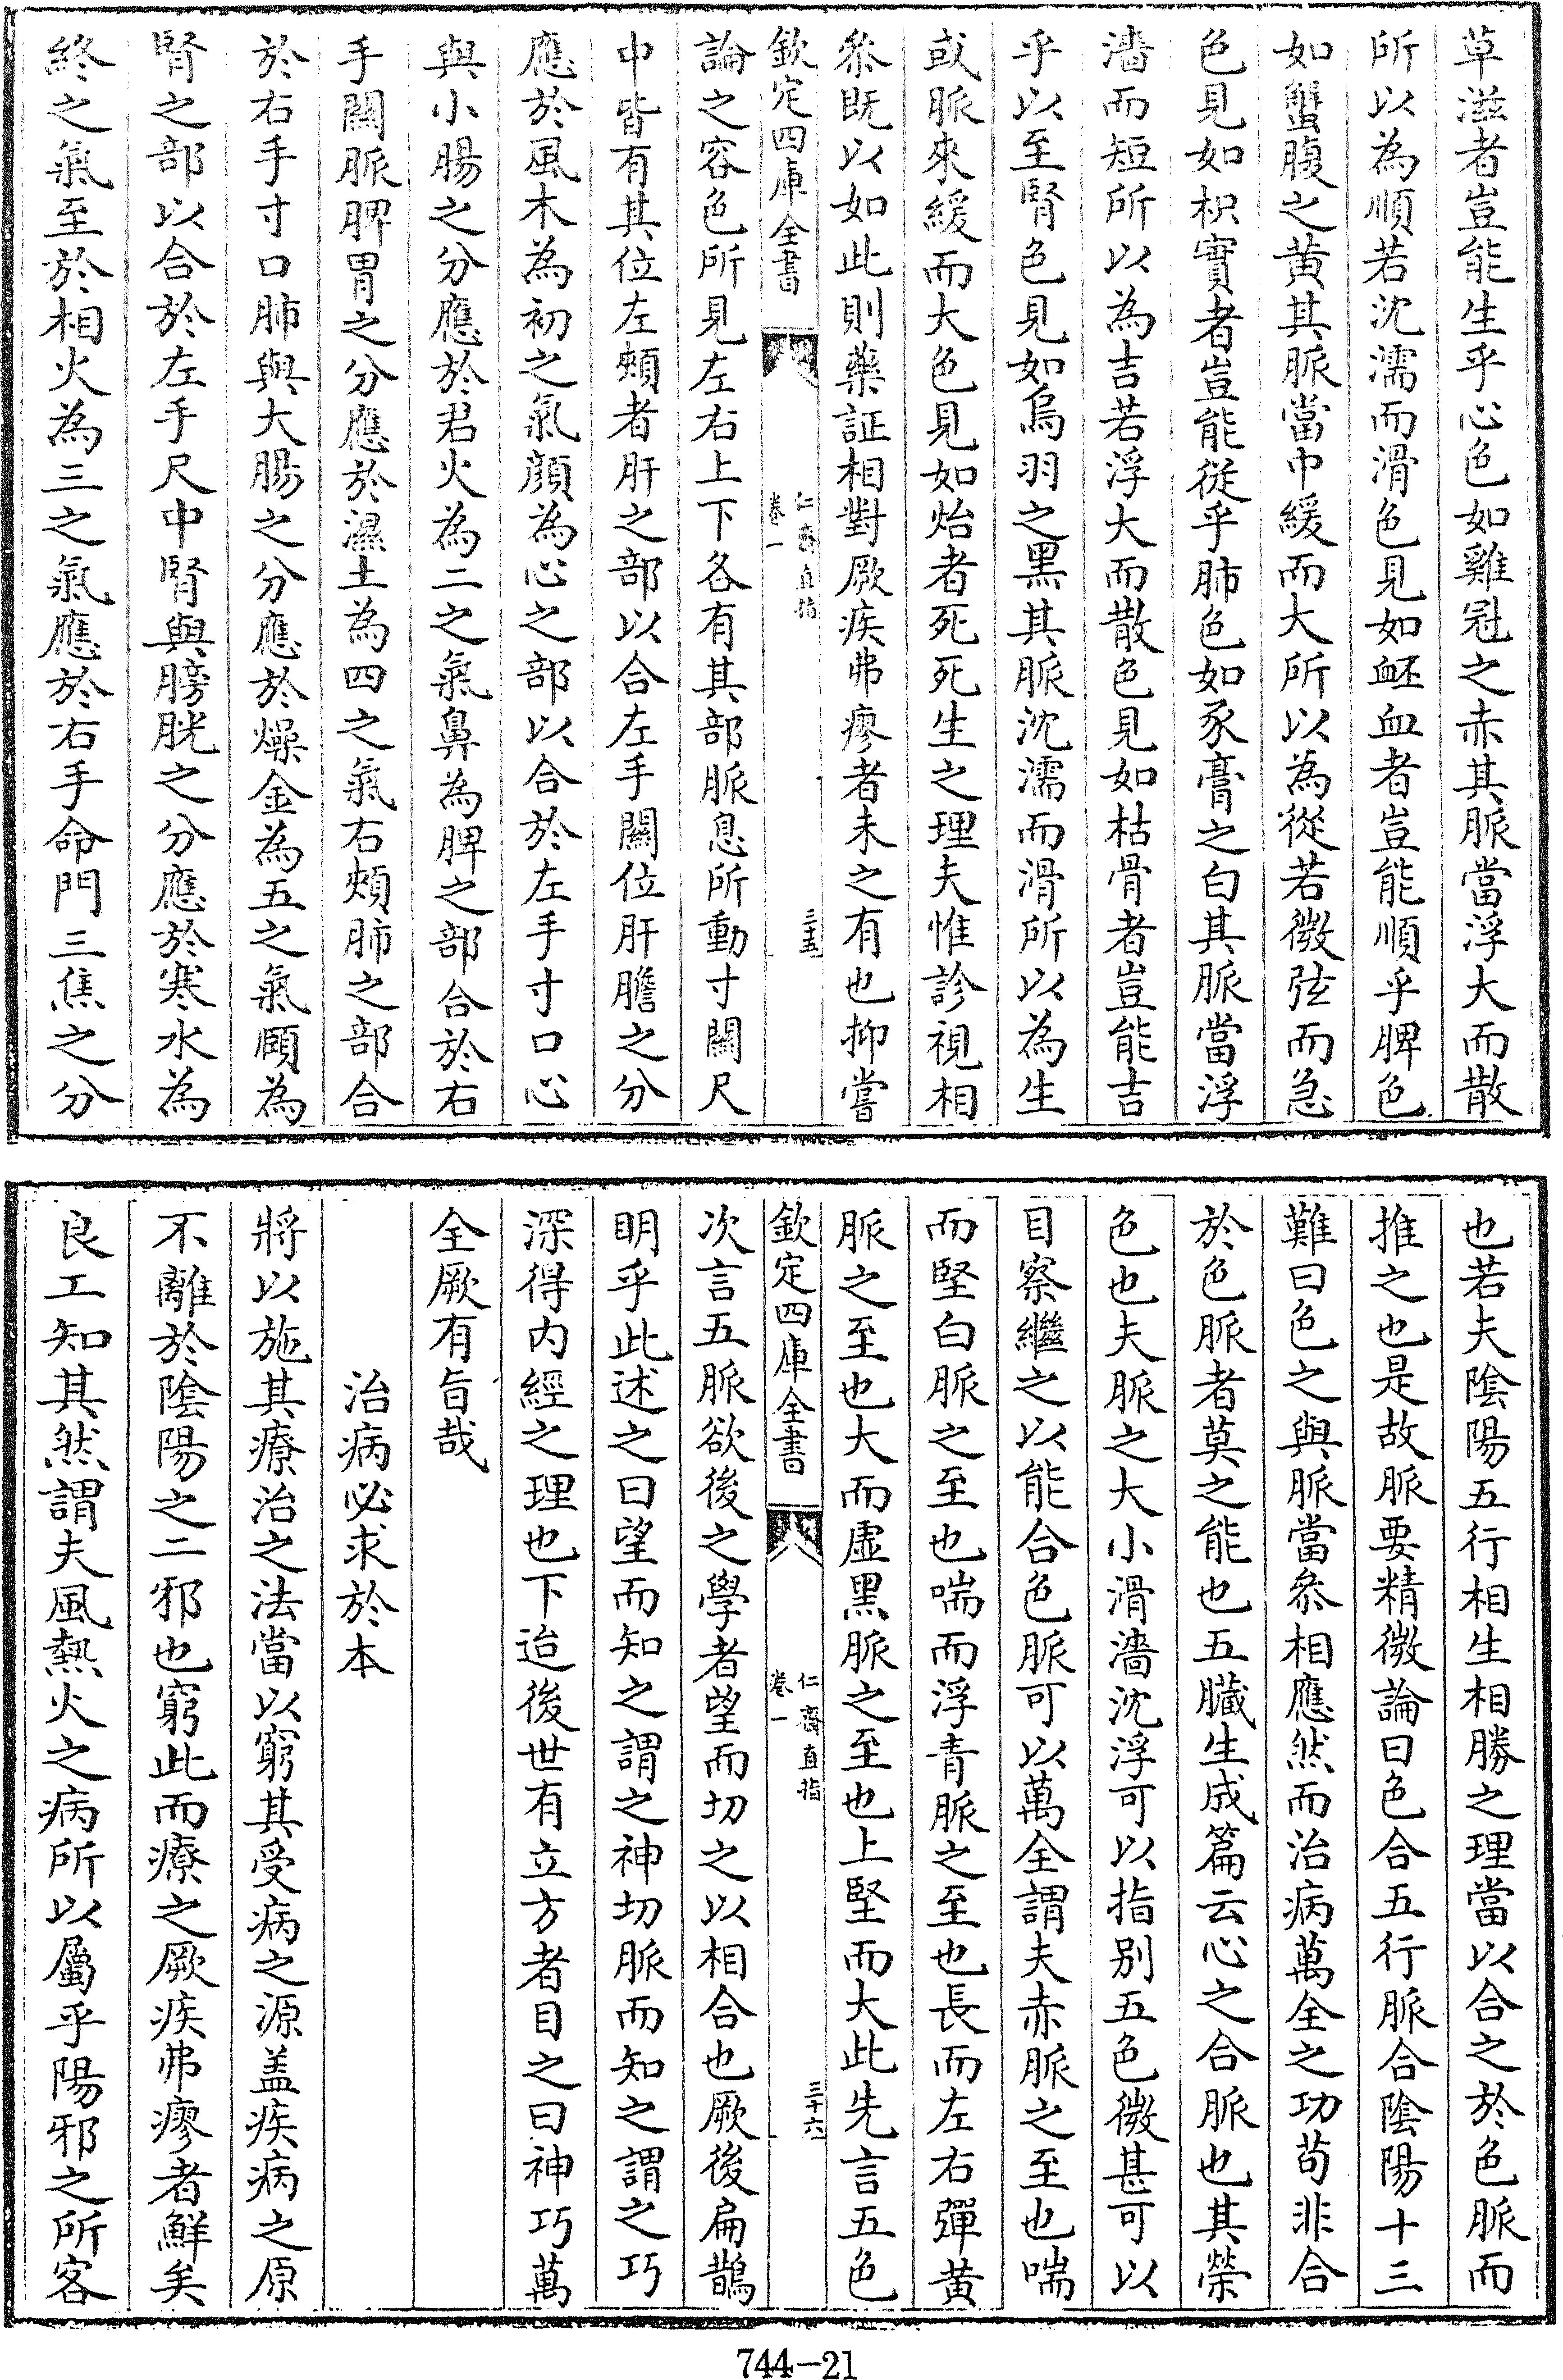 草滋者豈能生乎心色如雞冠之赤其脈當浮大而散
所以為順若沈濡而滑色見如衃血者豈能順乎脾色
如蟹腹之黄其脈當中緩而大所以為從若微弦而急
色見如枳實者豈能從乎肺色如豕膏之白其脈當浮
濇而短所以為吉若浮大而散色見如枯骨者豈能吉
乎以至腎色見如烏羽之黑其脈沈濡而滑所以為生
或脈來緩而大色見如炲者死死生之理夫惟診視相
叅既以如此則藥証相對厥疾弗瘳者未之有也抑嘗
欽定四庫全書
仁齋直指
卷一
三十五
論之容色所見左右上下各有其部脈息所動寸關尺
中皆有其位左頰者肝之部以合左手關位肝膽之分
應於風木為初之氣顔為心之部以合於左手寸口心
與小腸之分應於君火為二之氣鼻為脾之部合於右
手關脈脾胃之分應於濕土為四之氣右頰肺之部合
於右手寸口肺與大腸之分應於燥金為五之氣頤為
腎之部以合於左手尺中腎與膀胱之分應於寒水為
終之氣至於相火為三之氣應於右手命門三焦之分
也若夫陰陽五行相生相勝之理當以合之於色脈而
推之也是故脈要精微論曰色合五行脈合陰陽十三
難曰色之與脈當叅相應然而治病萬全之功苟非合
於色脈者莫之能也五臟生成篇云心之合脈也其榮
色也夫脈之大小滑濇沈浮可以指别五色微甚可以
目察繼之以能合色脈可以萬全謂夫赤脈之至也喘
而堅白脈之至也喘而浮青脈之至也長而左右彈黄
脈之至也大而虛黑脈之至也上堅而大此先言五色
欽定四庫全書
仁齋直指
卷一
三十六
次言五脈欲後之學者望而切之以相合也厥後扁鵲
明乎此述之曰望而知之謂之神切脈而知之謂之巧
深得内經之理也下迨後世有立方者目之曰神巧萬
全厥有旨哉
治病必求於本
將以施其療治之法當以窮其受病之源盖疾病之原
不離於陰陽之二邪也窮此而療之厥疾弗瘳者鮮矣
良工知其然謂夫風熱火之病所以屬乎陽邪之所客
744-21